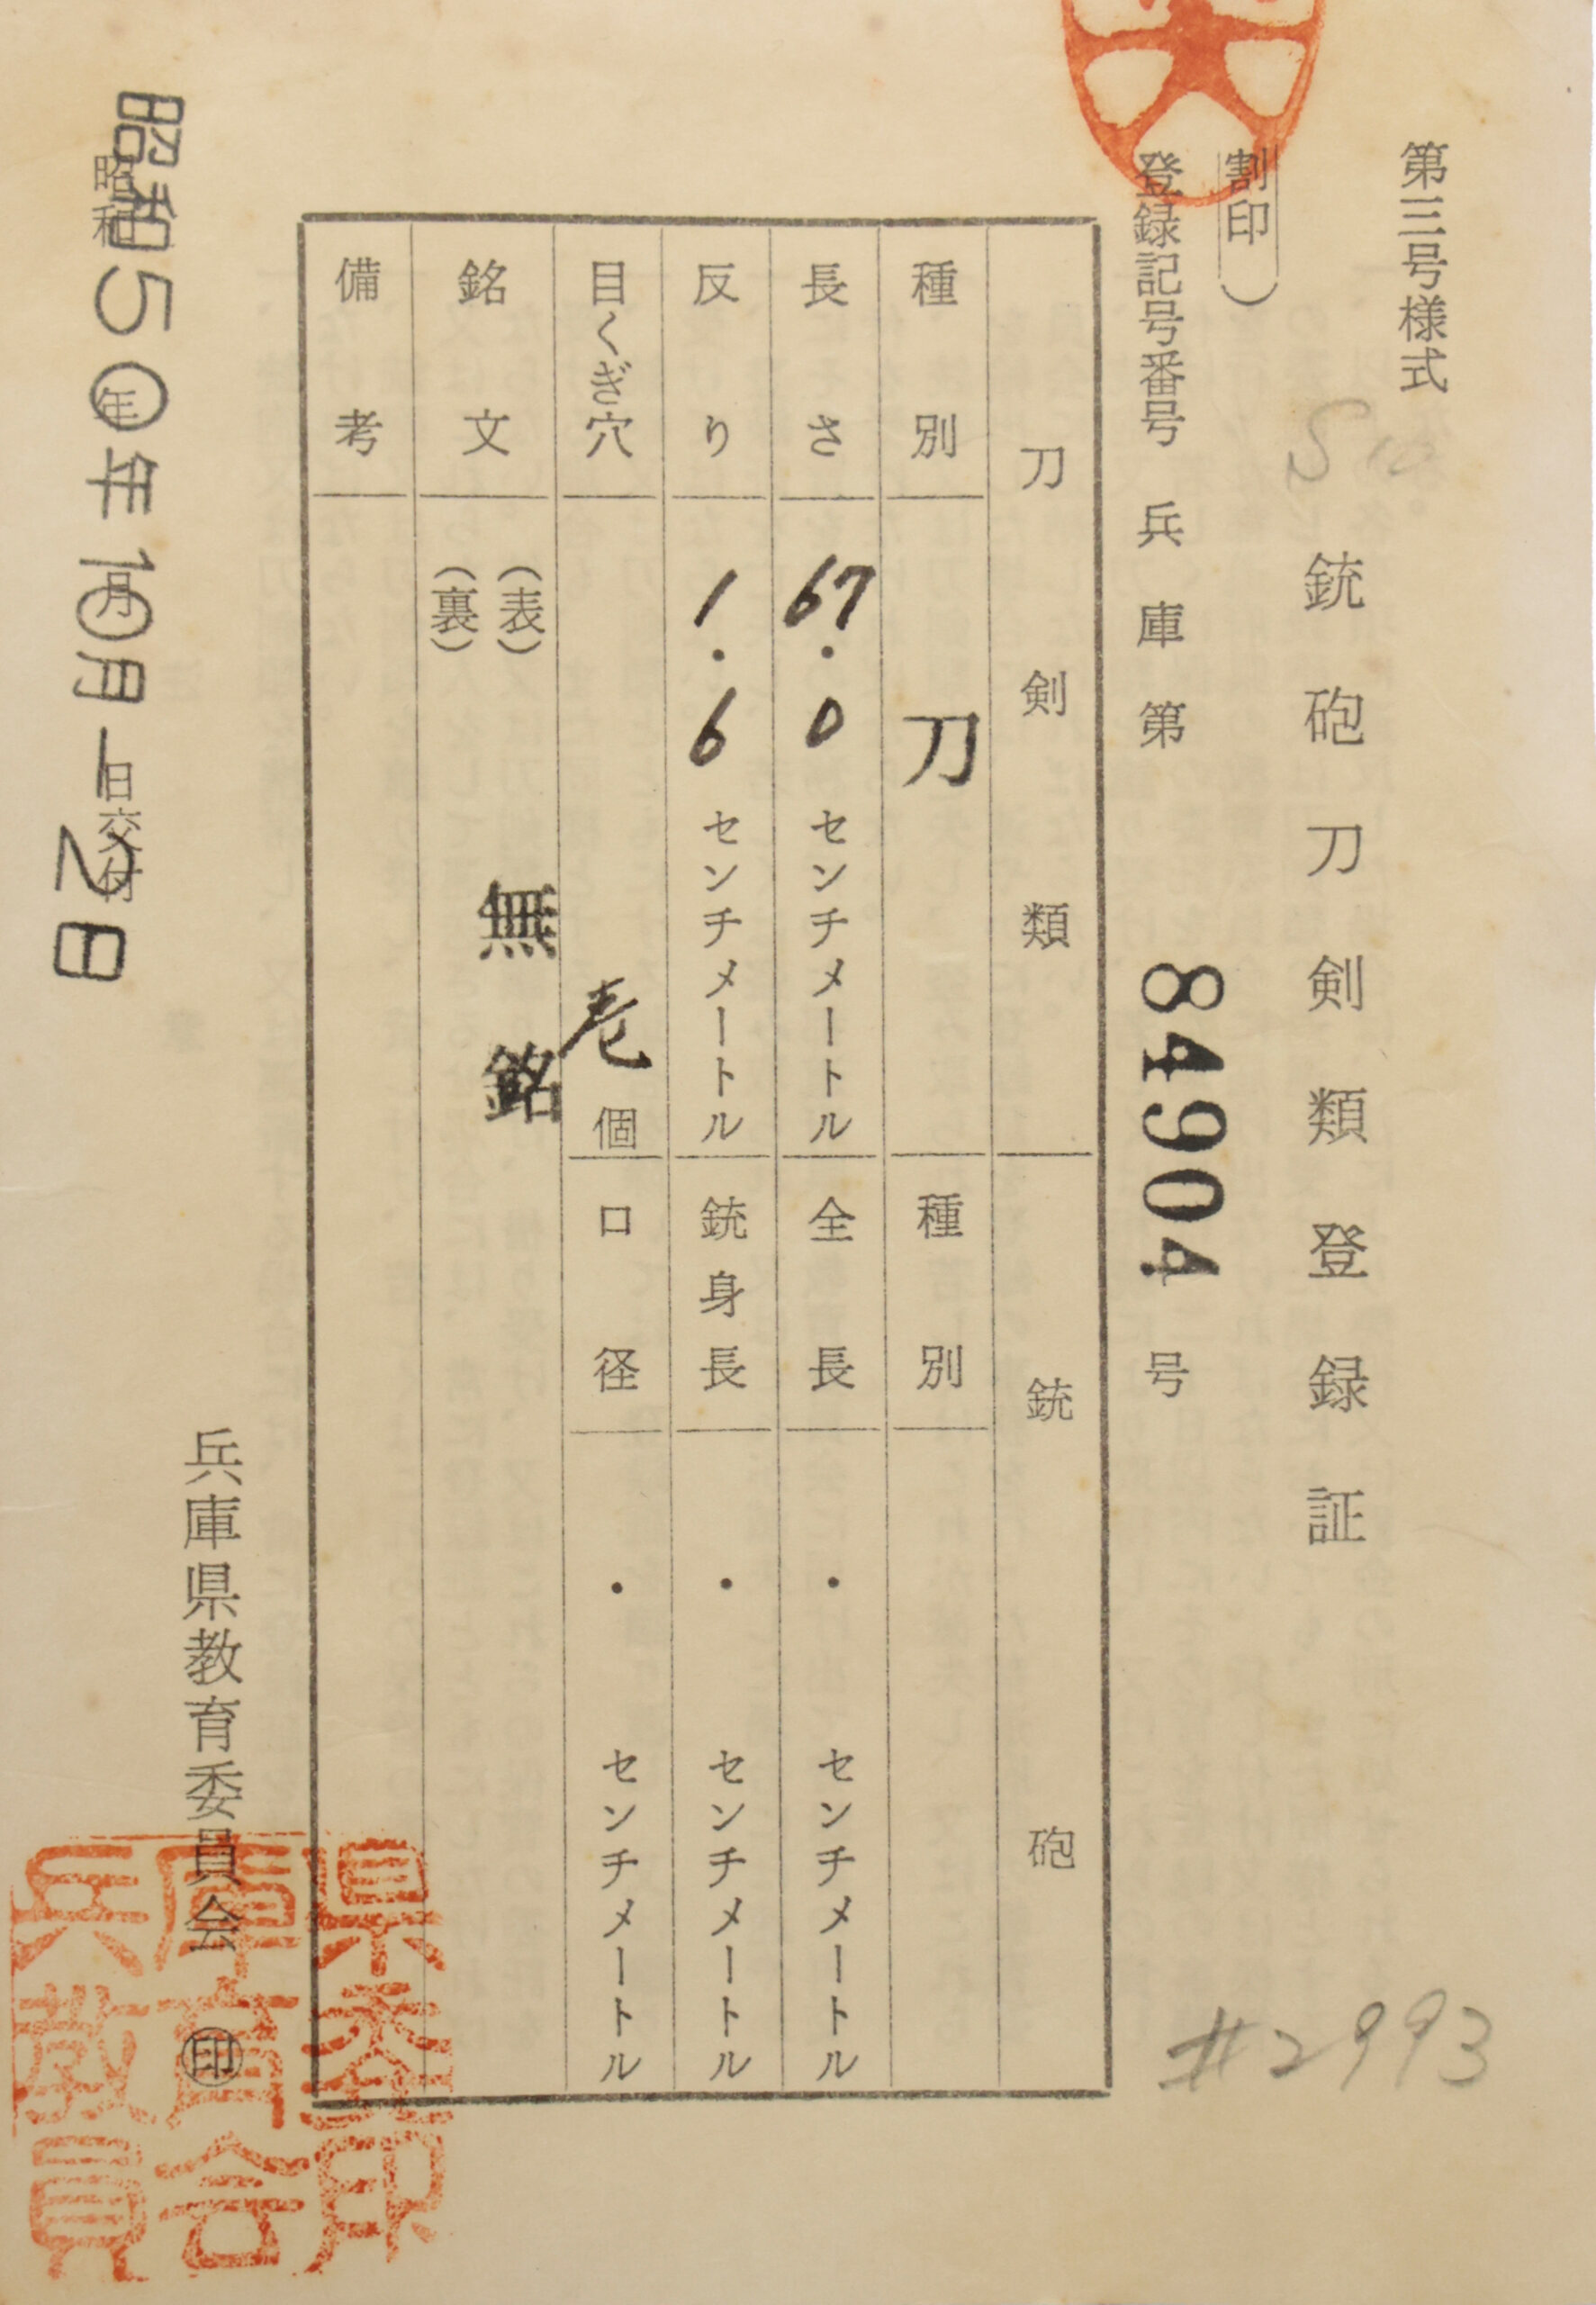 第三号様式
銃砲刀剣類登録証
割印）
登録記号番号 兵庫第 84904 号
刀剣類 銃砲
種別 刀 種別
長さ 67.0 センチメートル 全長 ・ センチメートル
反り 1.6 センチメートル 銃身長 ・ センチメートル
目くぎ穴 壱個 口径 ・ センチメートル
銘文 （表） 無銘
（裏）
備考
昭和 年 月 日交付
昭和50年10月-2日
兵庫県教育委員会 ㊞
兵庫県
教育委
員会印
#2993